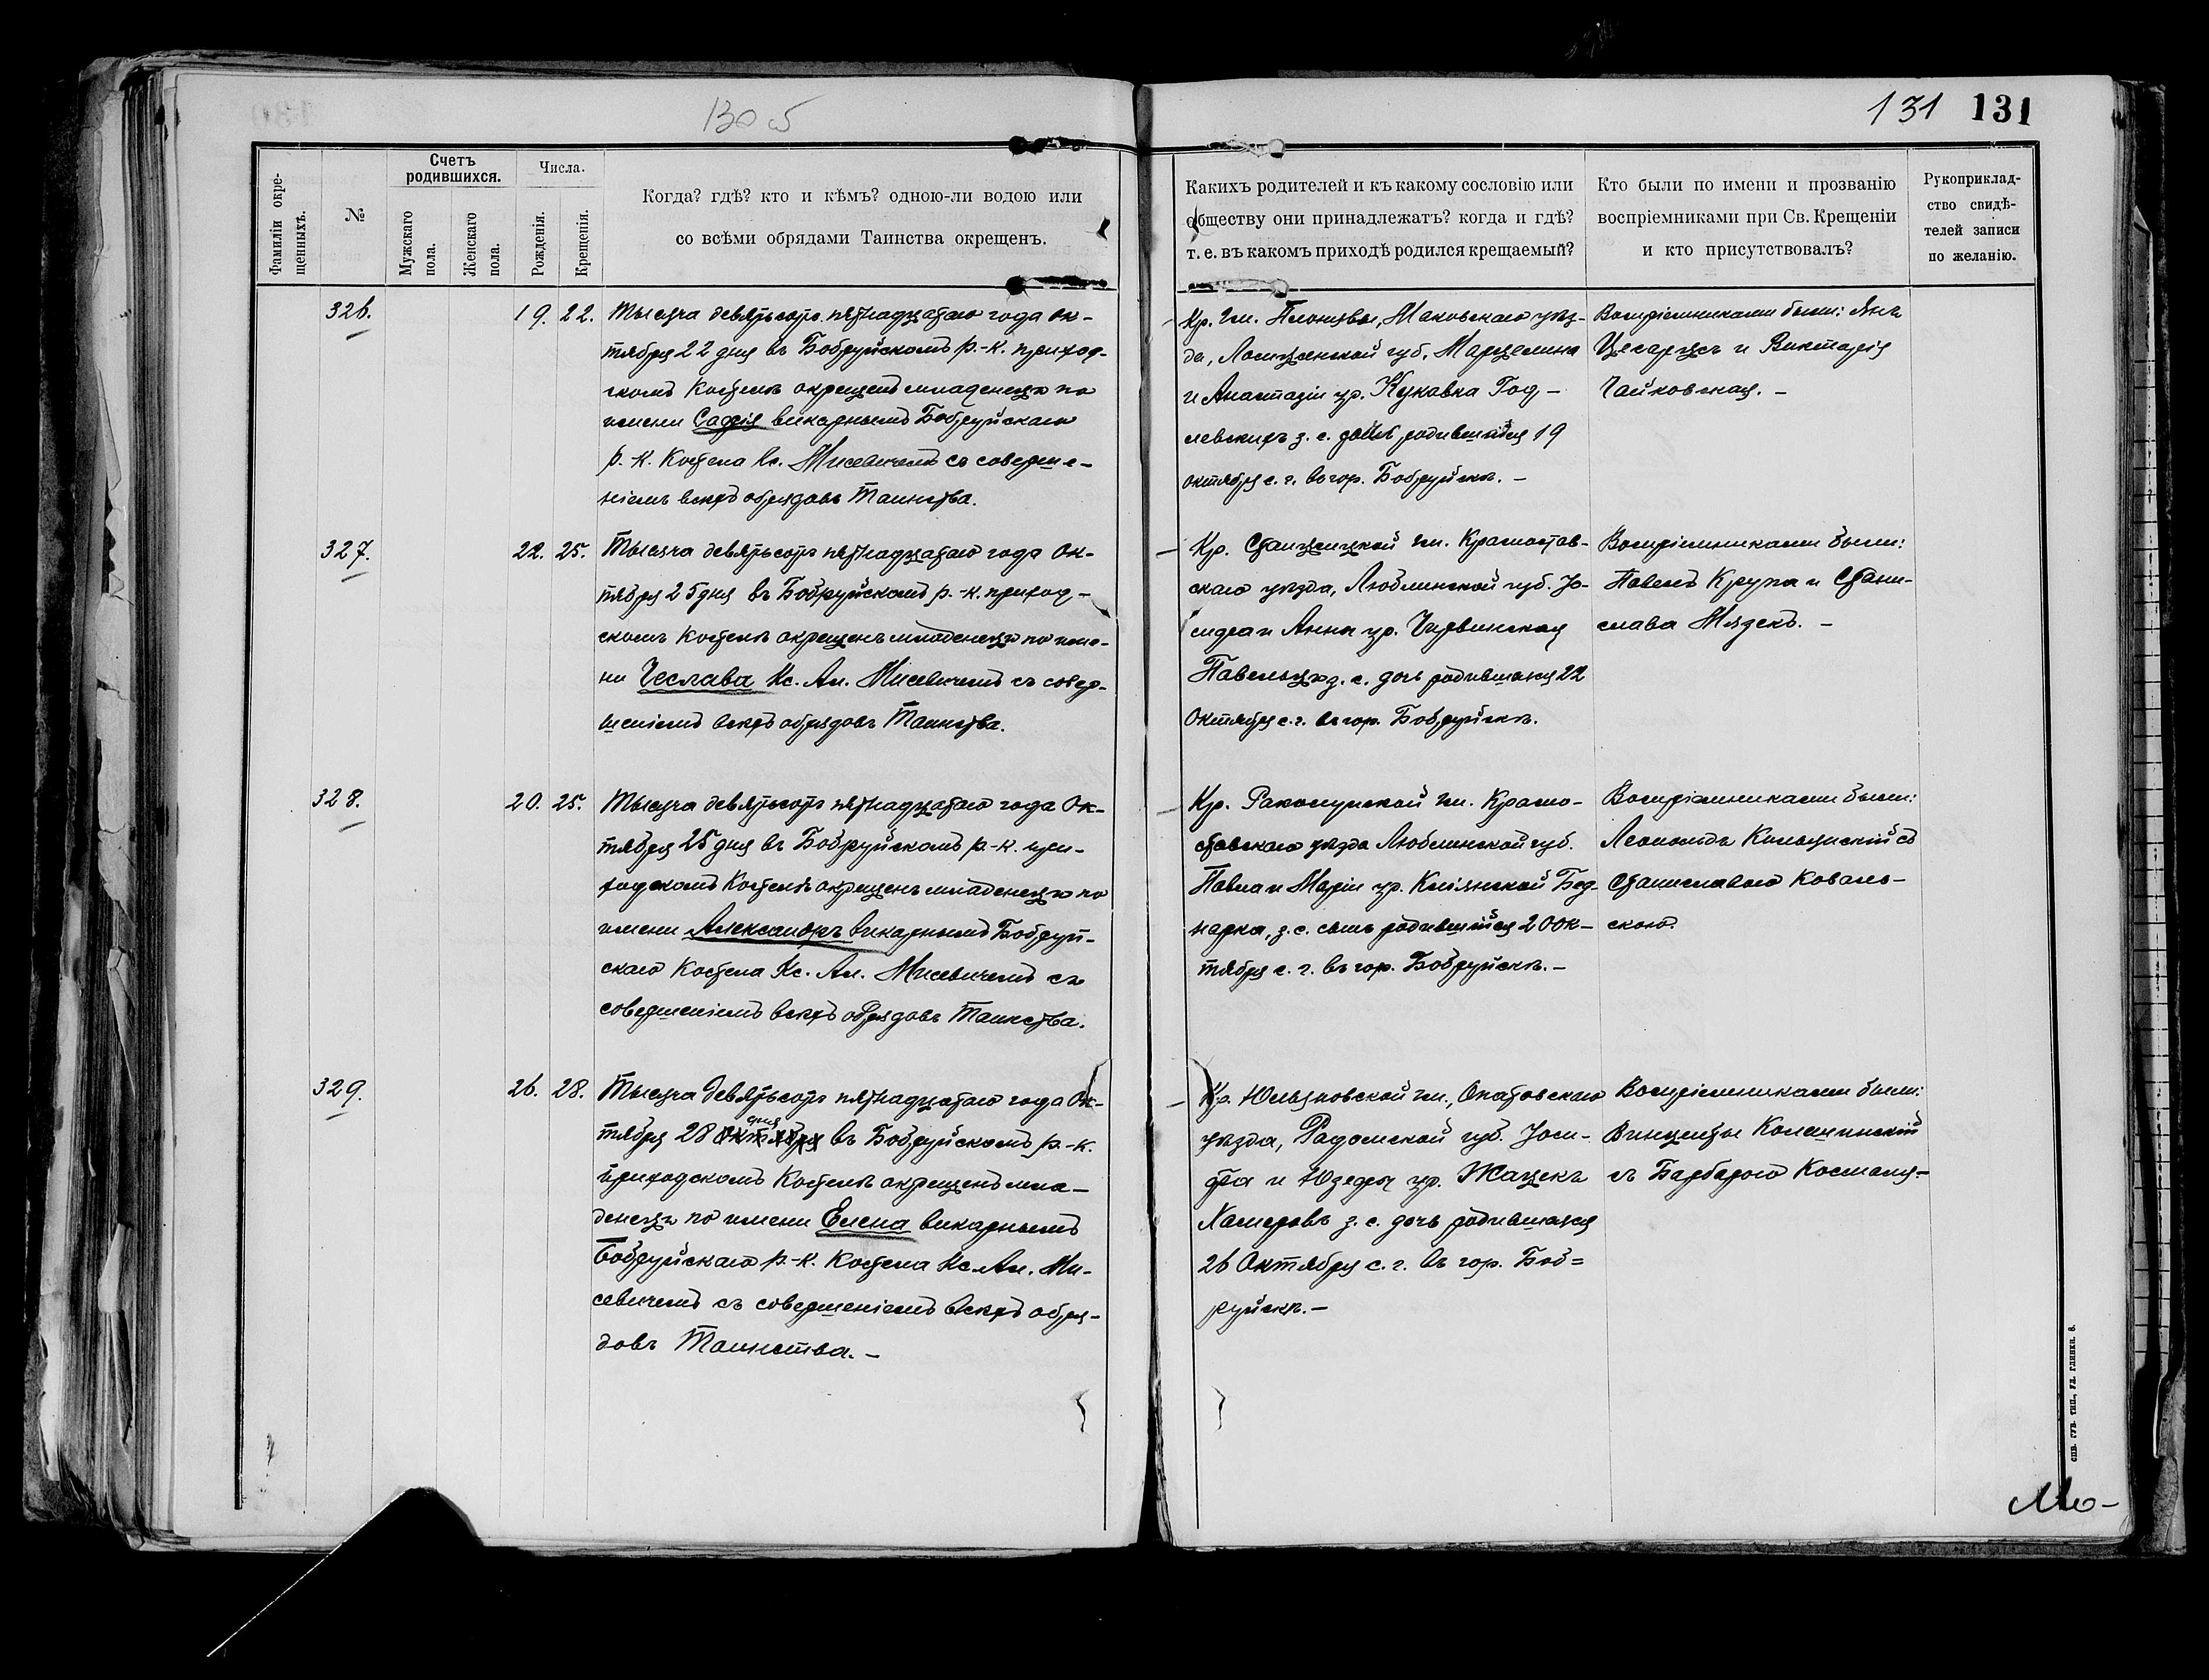 130 об
131 131
Фамиліи окре-
щенныхъ.
№
Счетъ
родившихся.
Мужскаго
пола.
Женскаго
пола.
Числа.
Рожденія.
Крещенія.
Когда? гдѣ? кто и кѣмъ? одною-ли водою или
со всѣми обрядами Таинства окрещенъ.
Какихъ родителей и къ какому сословію или
обществу они принадлежатъ? когда и гдѣ?
т. е. въ какомъ приходѣ родился крещаемый?
Кто были по имени и прозванію
воспріемниками при Св. Крещеніи
и кто присутствовалъ?
Рукоприклад-
ство свидѣ-
телей записи
по желанію.
326. 19. 22.
Тысяча девятьсотъ пятнадцатаго года ок-
тября 22 дня въ Бобруйскомъ р.-к. приход-
скомъ Костелѣ окрещенъ младенецъ по
имени Софія викарнымъ Бобруйскаго
р.-к. Костела Кс. Мисевичемъ съ соверше-
ніемъ всѣхъ обрядовъ Таинства.
Кр. гм. Маковскаго уѣз-
да, Ломжинской губ. Марцелина
и Анастазіи ур. Кукавка Год-
левскихъ з. с. дочь родившаяся 19
октября с. г. въ гор. Бобруйскѣ. –
Воспріемниками были: Янъ
и Викторія
Чайковская. –
327. 22. 25.
Тысяча девятьсотъ пятнадцатаго года Ок-
тября 25 дня въ Бобруйскомъ р.-к. приход-
скомъ Костелѣ окрещенъ младенецъ по име-
ни Чеслава Кс. Ал. Мисевичемъ съ совер-
шеніемъ всѣхъ обрядовъ Таинства.
Кр. гм. Красностав-
скаго уѣзда, Люблинской губ. Іо-
сифа и Анны ур. Чирвинская
Павельцъ з. с. дочь родившаяся 22
Октября с. г. въ гор. Бобруйскѣ.
Воспріемниками были:
Павелъ Крупа и Стани-
слава Мазекъ. –
328. 20. 25.
Тысяча девятьсотъ пятнадцатаго года Ок-
тября 25 дня въ Бобруйскомъ р.-к. при-
ходскомъ Костелѣ окрещенъ младенецъ по
имени Александръ викарнымъ Бобруй-
скаго Костела Кс. Ал. Мисевичемъ съ
совершеніемъ всѣхъ обрядовъ Таинства.
Кр. Раколупской гм. Красно-
ставскаго уѣзда Люблинской губ.
Павла и Маріи ур. Бед-
нарка, з. с. сынъ родившійся 20 Ок-
тября с. г. въ гор. Бобруйскѣ. –
Воспріемниками были:
Леопольдъ съ
Станиславою Коваль-
скою.
329. 26. 28.
Тысяча девятьсотъ пятнадцатаго года Ок-
тября 28 дня въ Бобруйскомъ р.-к.
приходскомъ Костелѣ окрещенъ мла-
денецъ по имени Елена викарнымъ
Бобруйскаго р.-к. Костела Кс. Ал. Ми-
севичемъ съ совершеніемъ всѣхъ обря-
довъ Таинства. –
Кр. Юльяновской гм., Опатовскаго
уѣзда, Радомской губ. Іоси-
фа и Юзефы ур. Жацекъ
Хамеровъ з. с. дочь родившаяся
26 Октября с. г. въ гор. Боб=
руйскѣ. –
Воспріемниками были:
Винцентъ
съ Барбарою
СПБ. ГУБ. ТИП., УЛ. ГЛИНКИ. 8.